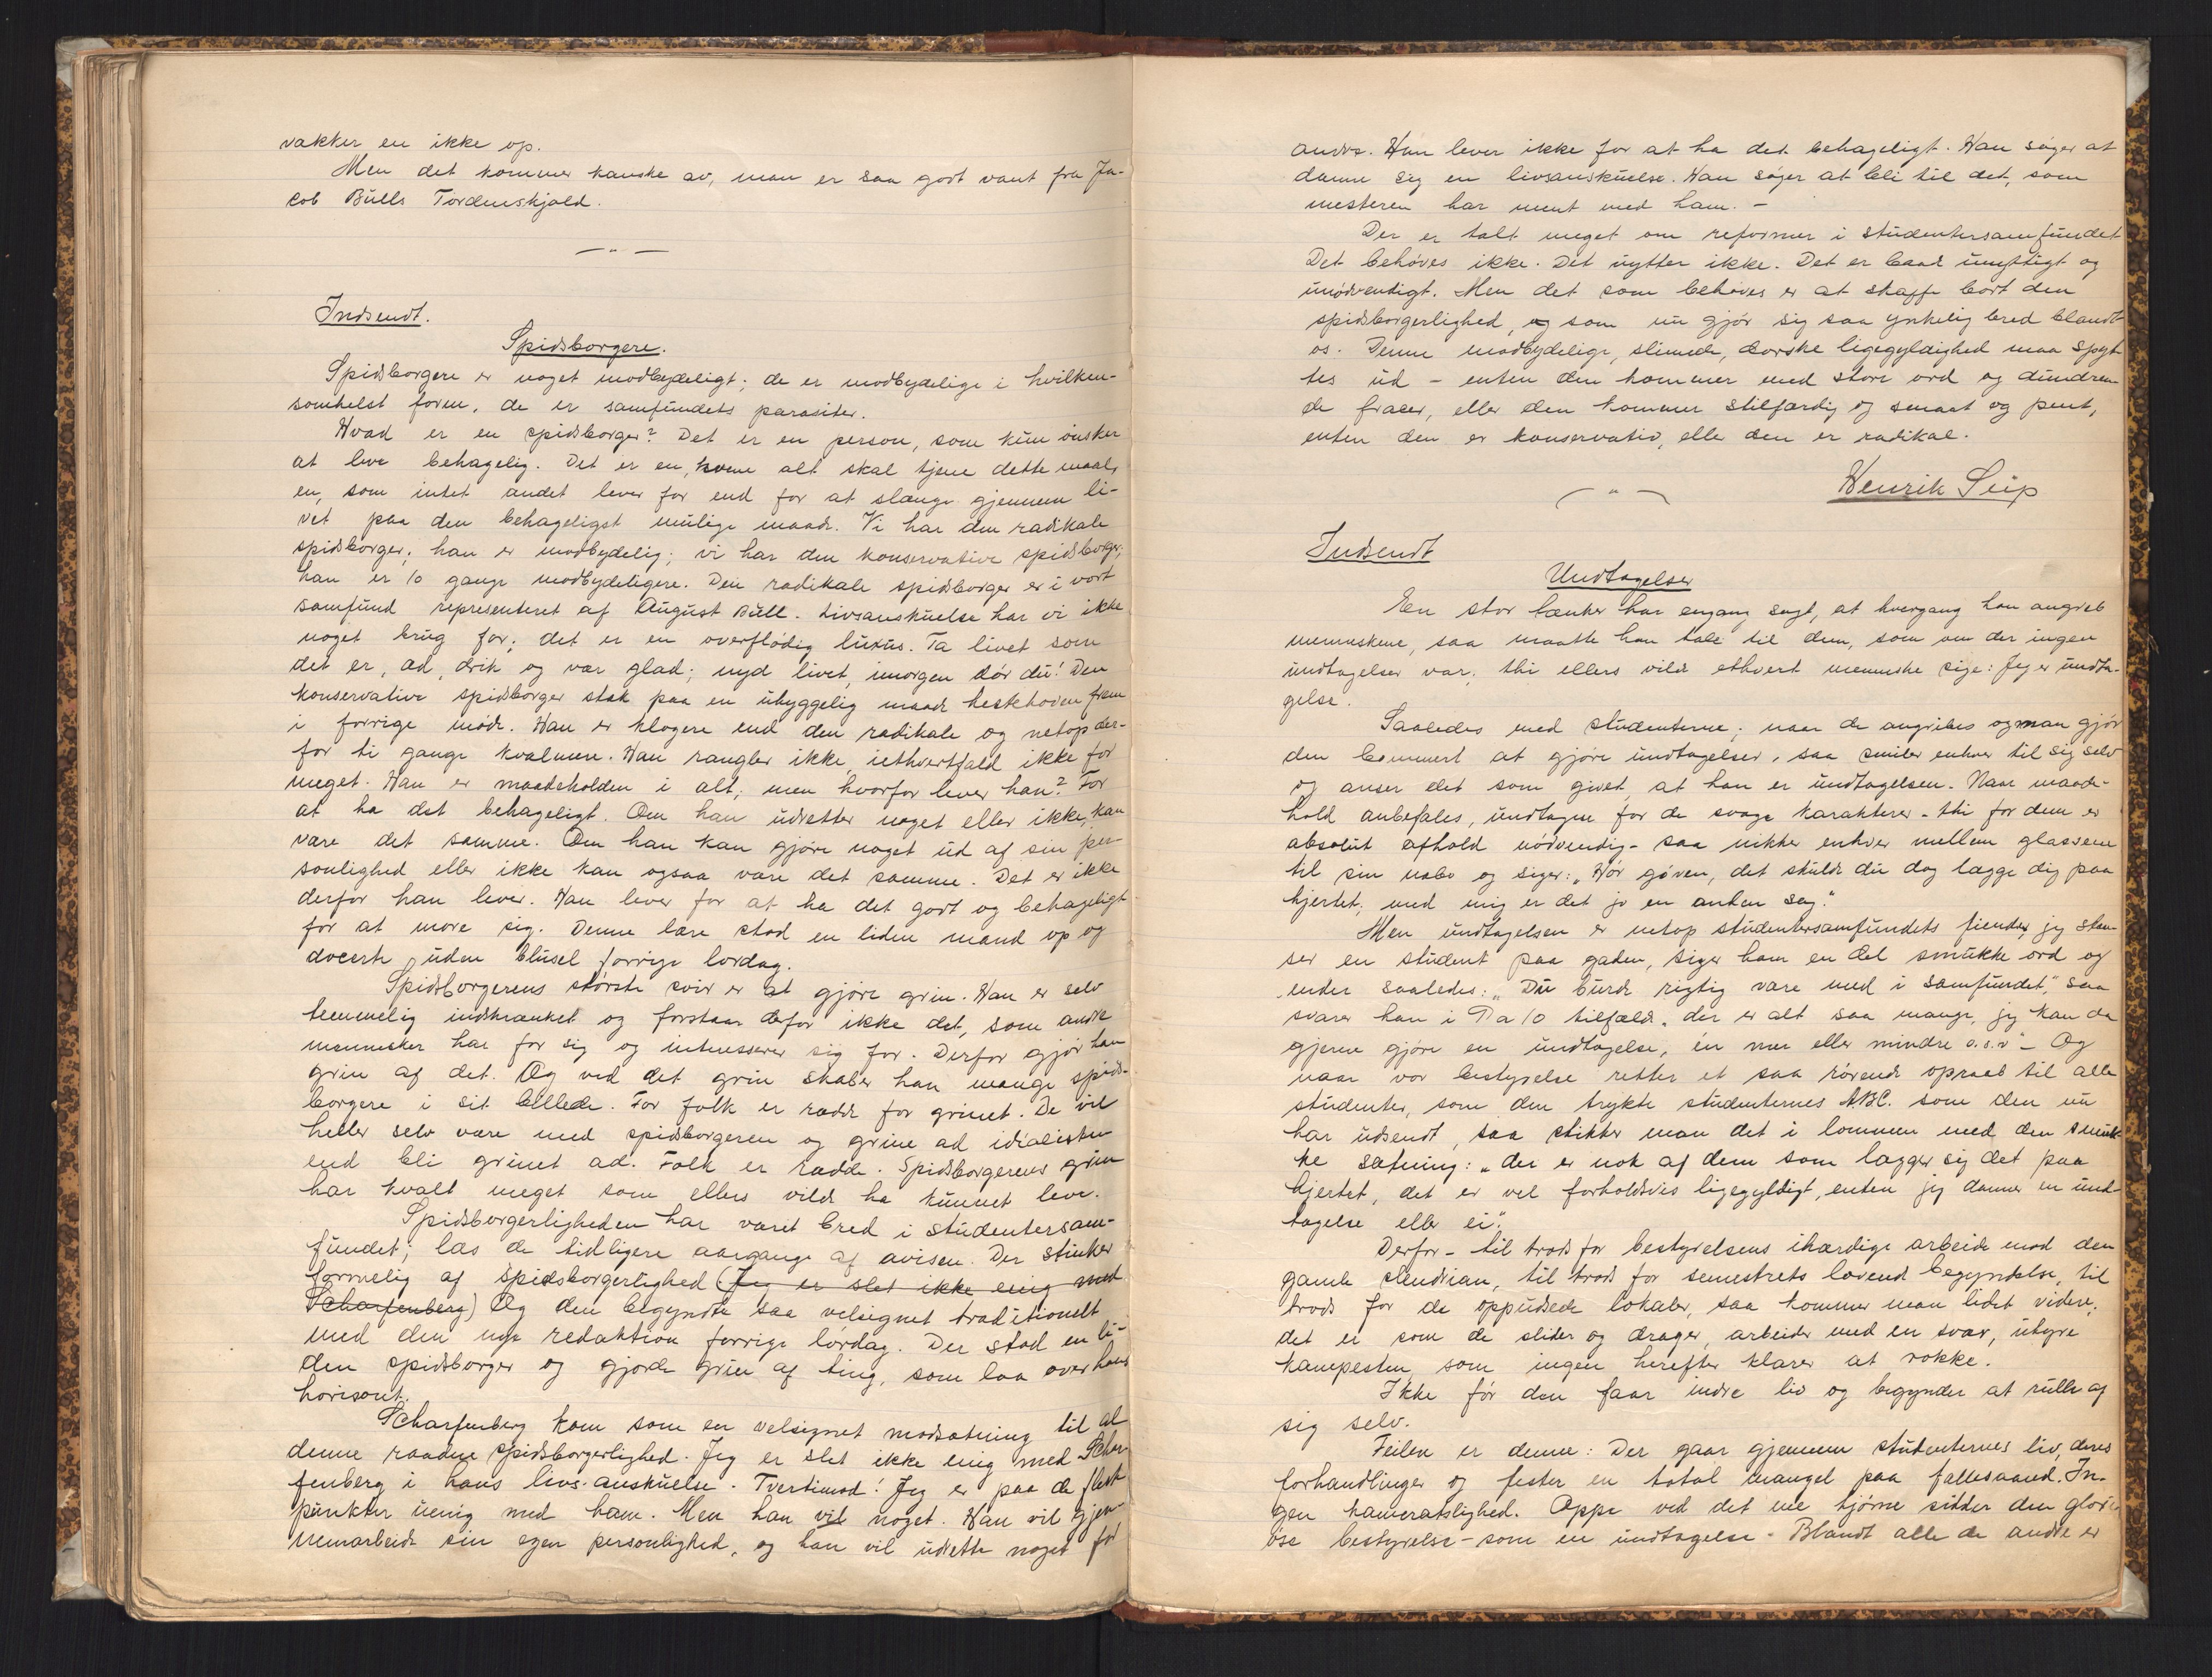 vakker en ikke op.
Men det kommer kanske av, man er saa godt vant fra Ja-
cob Bulls Tordenskjold.
— " —
Indsendt.
Spidsborgere.
Spidsborgere er noget modbydeligt; de er modbydelige i hvilken-
somhelst form, de er samfundets parasiter.
Hvad er en spidsborger? Det er en person, som kun ønsker
at leve behagelig. Det er en, hvem alt skal tjene dette maal,
en, som intet andet lever for end for at slænge gjennem li-
vet paa den behageligst mulige maade. Vi har den radikale
spidsborger, han er modbydelig; vi har den konservative spidsborger;
han er 10 gange modbydeligere. Den radikale spidsborger er i vort
samfund representeret af August Bull. Livsanskuelse har vi ikke
noget brug for; det er en overflødig luxus. Ta livet som
det er, æd, drik og vær glad; nyd livet, imorgen dør du! Den
konservative spidsborger stak paa en uhyggelig maade hestehoven frem
i forrige møde. Han er klogere end den radikale og netop der-
for ti gange kvalmere. Han rangler ikke, iethvertfald ikke for
meget. Han er maadeholden i alt; men hvorfor lever han? For
at ha det behageligt. Om han udretter noget eller ikke, kan
være det samme. Om han kan gjøre noget ud af sin per-
sonlighed eller ikke kan ogsaa være det samme. Det er ikke
derfor han lever. Han lever for at ha det godt og behageligt
for at more sig. Denne lære stod en liden mand op og
docerte uden blusel forrige lørdag.
Spidsborgerens største svir er at gjøre grin. Han er selv
temmelig indskrænket og forstaar derfor ikke det, som andre
mennesker har for sig og interesserer sig for. Derfor gjør han
grin af det. Og ved det grin skaber han mange spids-
borgere i sit billede. For folk er rædde for grinet. De vil
heller selv være med spidsborgeren og grine ad idealisten
end bli grinet ad. Folk er rædde. Spidsborgerens grin
har kvalt meget som ellers vilde ha kunnet leve.
Spidsborgerligheden har været bred i studentersam-
fundet; læs de tidligere aargange af avisen. Der stinker
formelig af spidsborgerlighed (Jeg er slet ikke enig med
Scharfenberg) Og den begyndte saa velsignet traditionelt
med den nye redaktion forrige lørdag. Der stod en li-
den spidsborger og gjorde grin af ting, som laa over hans
horisont.
Scharfenberg kom som en velsignet modsætning til al
denne raadne spidsborgerlighed. Jeg er slet ikke enig med Schar-
fenberg i hans livs-anskuelse. Tvertimod! Jeg er paa de fleste
punkter uenig med ham. Men han vil noget. Han vil gjen-
nemarbeide sin egen personlighed, og han vil udrette noget for
andre. Han lever ikke for at ha det behageligt. Han søger at
danne sig en livsanskuelse. Han søger at bli til det, som
mesteren har ment med ham. -
Der er talt meget om reformer i studentersamfundet
Det behøves ikke. Det nytter ikke. Det er baade unyttigt og
unødvendigt. Men det som behøves er at skaffe bort den
spidsborgerlighed, og som nu gjør sig saa ynkelig bred blandt
os. Denne modbydelige, slimede, dorske ligegyldighed maa spyt-
tes ud - enten den kommer med store ord og dundren-
de fraser, eller den kommer stilfærdig og smaat og pent,
enten den er konservativ, eller den er radikal.
Henrik Seip
— " —
Indsendt
Undtagelser
En stor tænker har engang sagt, at hvergang han angreb
menneskene, saa maatte han tale til dem, som om der ingen
undtagelser var; thi ellers vilde ethvert menneske sige: Jeg er undta-
gelse.
Saaledes med studenterne; naar de angribes og man gjør
den bommert at gjøre undtagelser, saa smiler enhver til sig selv
og anser det som givet, at han er undtagelsen. Naar maade-
hold anbefales, undtagen for de svage karakterer - thi for dem er
absolut afhold nødvendig - saa nikker enhver mellem glassene
til sin nabo og siger: "Hør gøven, det skulde du dog lægge dig paa
hjertet; med mig er det jo en anden sag."
Men undtagelsen er netop studentersamfundets fiende; jeg stan-
ser en student paa gaden, siger ham en del smukke ord og
ender saaledes: "Du burde rigtig være med i samfundet," saa
svarer han i 9 a 10 tilfælde "der er alt saa mange, jeg kan da
gjerne gjøre en undtagelse, én mer eller mindre o.s.v" - Og
naar vor bestyrelse retter et saa rørende opraab til alle
studenter, som den trykte studenternes ABC. som den nu
har udsendt, saa stikker man det i lommen med den smuk-
ke sætning: "der er nok af dem som lægger sig det paa
hjertet, det er vel forholdsvis ligegyldigt, enten jeg danner en und-
tagelse eller ei".
Derfor - til trods for bestyrelsens ihærdige arbeide mod den
gamle slendrian, til trods for semestrets lovende begyndelse, til
trods for de oppudsede lokaler, saa kommer man lidet videre;
det er som de slider og drager, arbeider med en svær, uhyre
kampesten, som ingen herefter klarer at rokke.
Ikke før den faar indre liv og begynder at rulle af
sig selv.
Feilen er denne: Der gaar gjennem studenternes liv, deres
forhandlinger og fester en total mangel paa fællesaand. In-
gen kameratslighed. Oppe ved det ene hjørne sidder den glori-
øse bestyrelse - som en undtagelse - Blandt alle de andre er